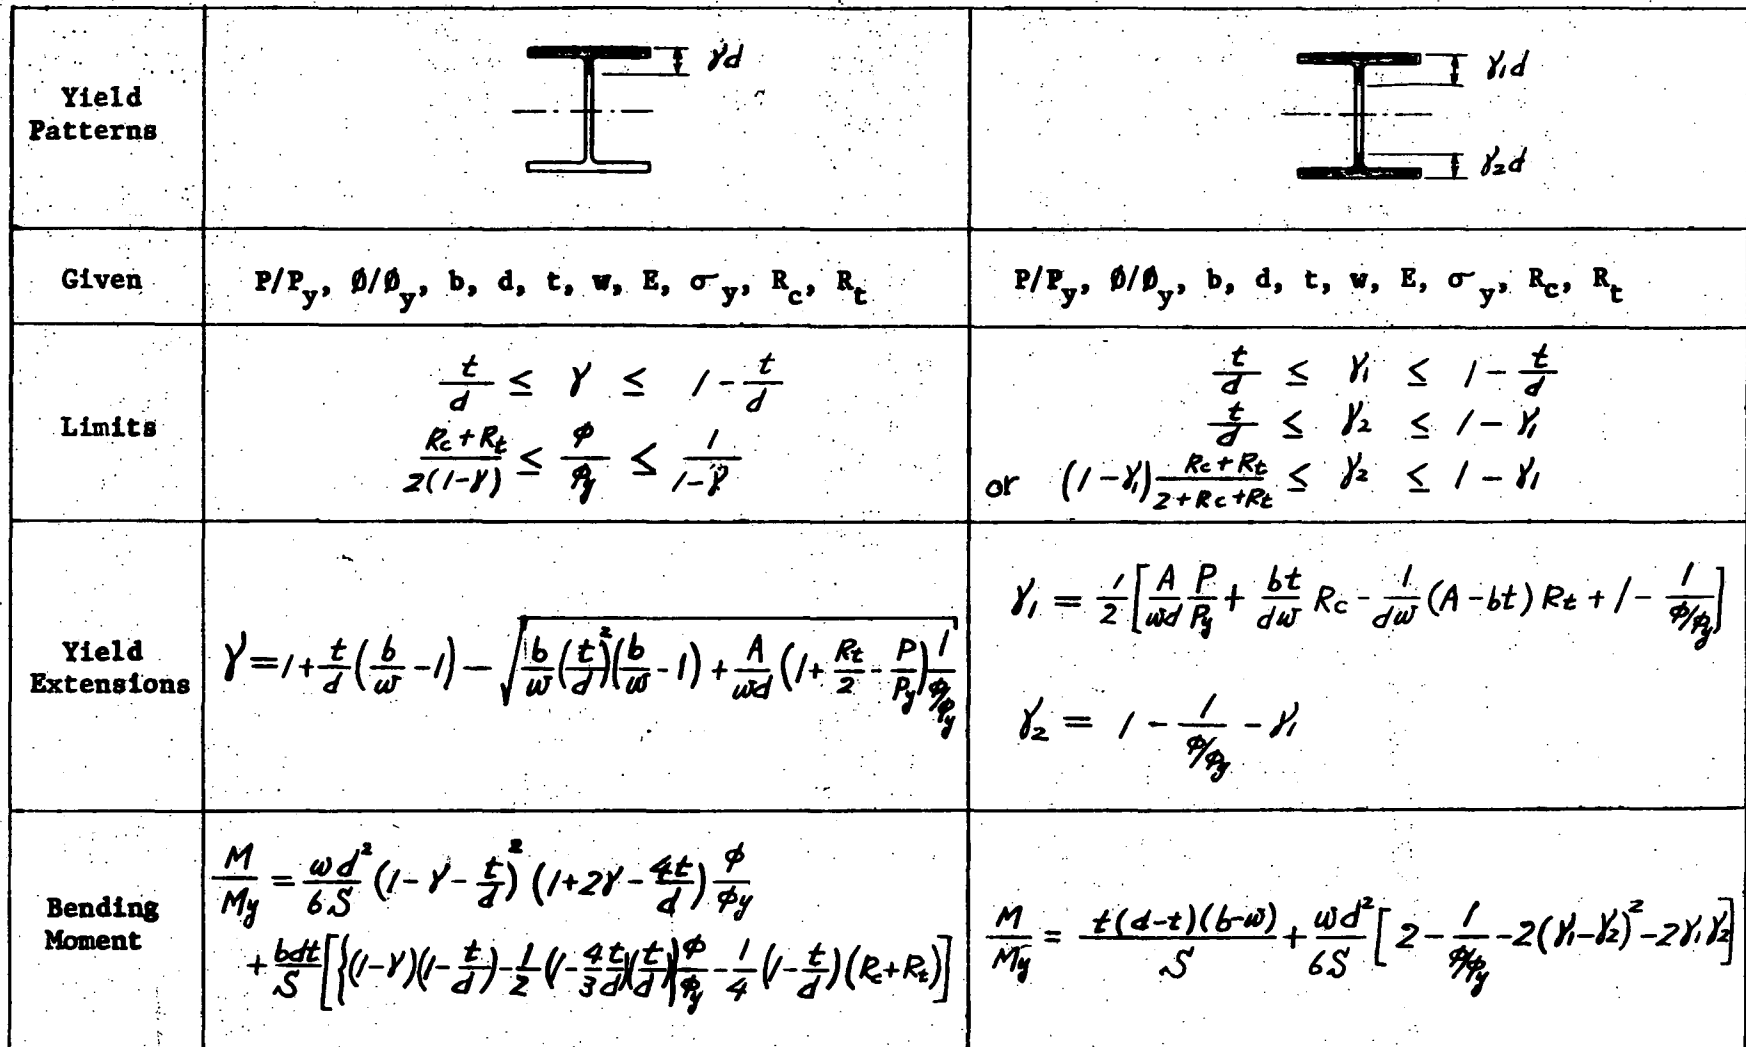 Yield Patterns
γd
γ₁d
γ₂d
Given
P/P_y, Ø/Ø_y, b, d, t, w, E, σ_y, R_c, R_t
P/P_y, Ø/Ø_y, b, d, t, w, E, σ_y, R_c, R_t
Limits
t/d ≤ γ ≤ 1 - t/d
(Rc + Rt)/(2(1-γ)) ≤ φ/φ_y ≤ 1/(1-γ)
t/d ≤ γ₁ ≤ 1 - t/d
t/d ≤ γ₂ ≤ 1 - γ₁
or (1-γ₁) (Rc + Rt)/(2 + Rc + Rt) ≤ γ₂ ≤ 1 - γ₁
Yield Extensions
γ = 1 + t/d (b/w - 1) - √(b/w (t/d)² (b/w - 1) + A/wd (1 + Rt/2 - P/P_y) 1/(φ/φ_y))
γ₁ = 1/2 [A/wd P/P_y + bt/dw Rc - 1/dw (A - bt) Rt + 1 - 1/(φ/φ_y)]
γ₂ = 1 - 1/(φ/φ_y) - γ₁
Bending Moment
M/M_y = wd²/6S (1 - γ - t/d)² (1 + 2γ - 4t/d) φ/φ_y
+ bdt/S [{(1-γ)(1 - t/d) - 1/2 (1 - 4/3 t/d)(t/d)} φ/φ_y - 1/4 (1 - t/d)(Rc + Rt)]
M/M_y = t(d-t)(b-w)/S + wd²/6S [2 - 1/(φ/φ_y) - 2(γ₁-γ₂)² - 2γ₁γ₂]